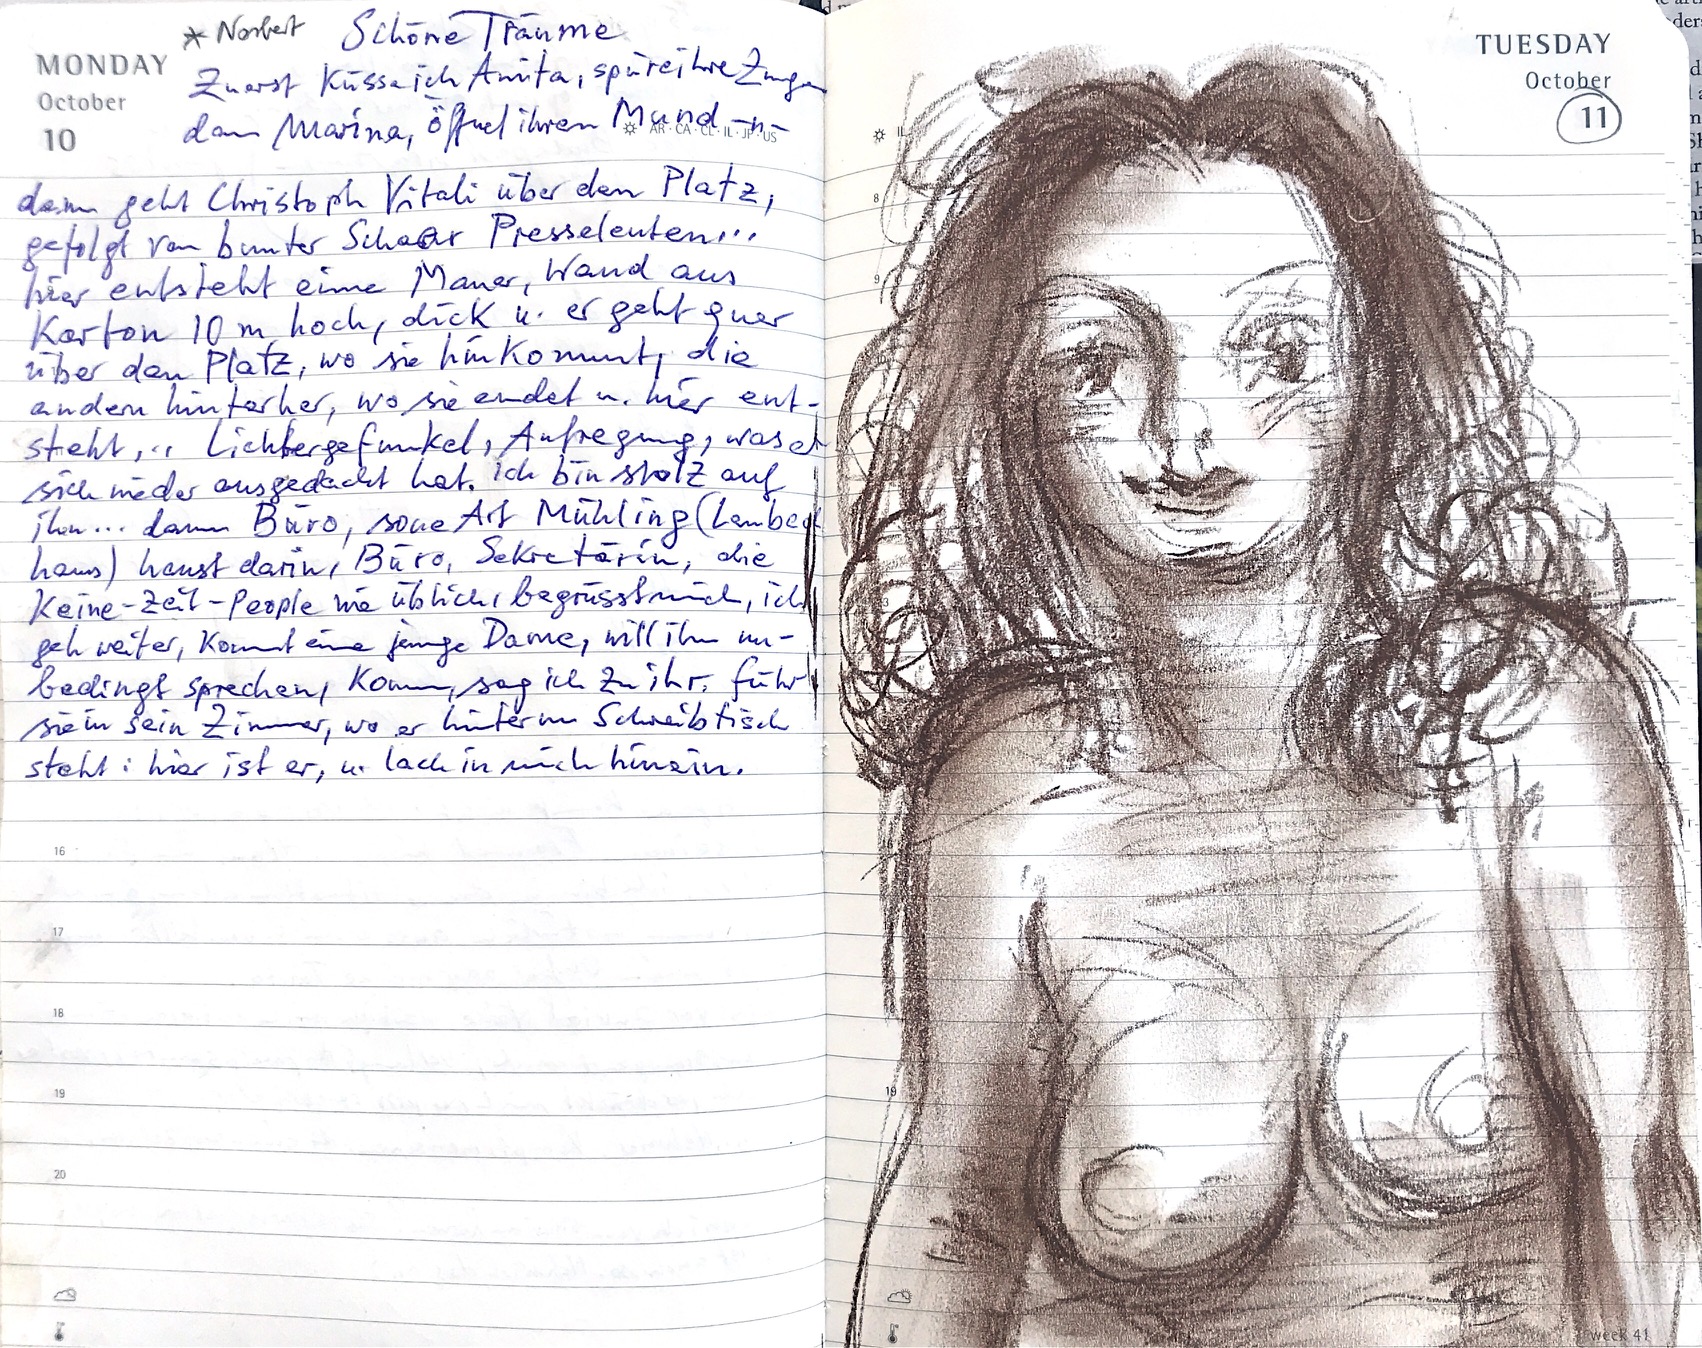 * Norbert Schöne Träume
MONDAY
October
10
Zuerst küsse ich Anita, spüre ihre Zunge
dann Marina, öffnet ihren Mund
AR · CA · CL · IL · JP · US
dann geht Christoph Vitali über den Platz,
gefolgt von bunter Schaar Presseleuten...
hier entsteht eine Mauer, Wand aus
Karton 10 m hoch, dick u. er geht quer
über den Platz, wo sie hinkommt, die
andern hinterher, wo sie endet u. hier ent-
steht... Lichtergefunkel, Aufregung, was er
sich wieder ausgedacht hat. ich bin stolz auf
ihn... dann Büro, sone Art Mühling (Lenbach
haus) haust darin, Büro, Sekretärin, die
Keine-Zeit-People wie üblich, begrüsst mich, ich
geh weiter, kommt eine junge Dame, will ihn un-
bedingt sprechen, komm, sag ich zu ihr, führ
sie in sein Zimmer, wo er hinterm Schreibtisch
steht: hier ist er, u. lach in mich hinein.
16
17
18
19
20
TUESDAY
October
11
IL
8
9
19
week 41